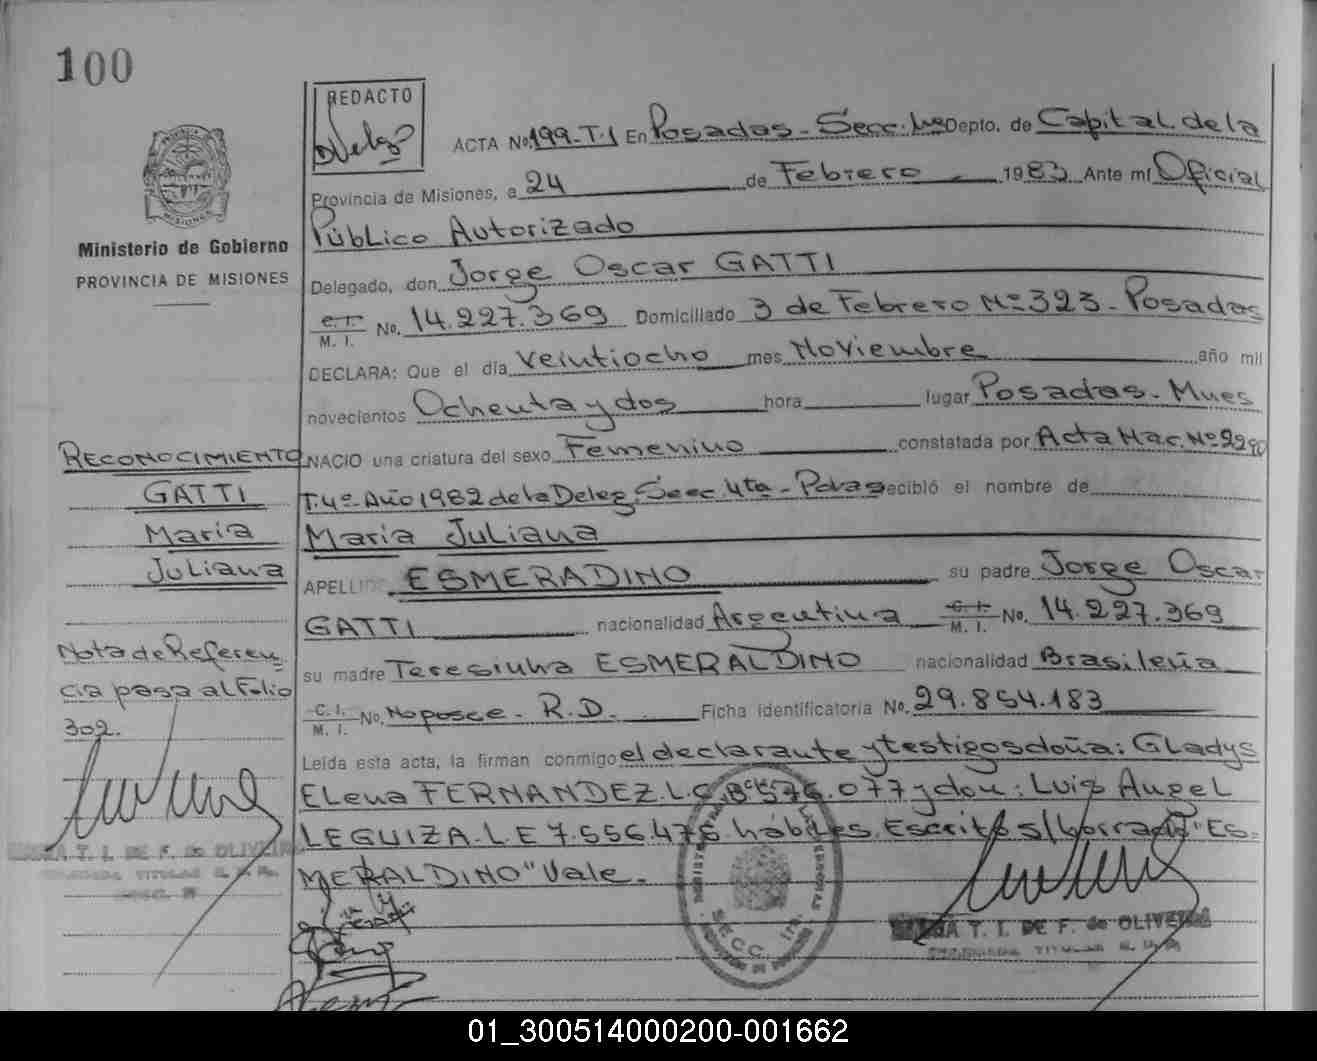 100
REDACTO
MISIONES
Ministerio de Gobierno
PROVINCIA DE MISIONES
ACTA No. 199.T.1 En Posadas - Secc. 1ra Depto. de Capital de la
Provincia de Misiones, a 24 de Febrero 1983 Ante mí Oficial
Público Autorizado
Delegado, don Jorge Oscar GATTI
C. I. M. I. No. 14.227.369 Domiciliado 3 de Febrero Nº 323 - Posadas
DECLARA: Que el día veintiocho mes Noviembre año mil
novecientos Ochenta y dos hora lugar Posadas - Mnes
NACIO una criatura del sexo Femenino constatada por Acta Nac. Nº 2290
T. 4º Año 1982 de la Deleg. Secc. 4ta - Pdas recibió el nombre de
Maria Juliana
APELLIDO ESMERADINO su padre Jorge Oscar
GATTI nacionalidad Argentina C. I. M. I. No. 14.227.369
su madre Teresinha ESMERALDINO nacionalidad Brasileña
C. I. M. I. No. No posee - R.D. Ficha identificatoria No. 29.854.183
Leída esta acta, la firman conmigo el declarante y testigos doña: Gladys
Elena FERNANDEZ L.C. 576.077 y don: Luis Angel
LEGUIZA - L.E 7.556.476 hábiles. Escrito s/ borrado "ES-
MERALDINO" Vale.
RECONOCIMIENTO
GATTI
Maria
Juliana
Nota de Referen-
cia pasa al Folio
302.
T. I. DE F. de OLIVEIRA
SECC. 1ra.
T. I. DE F. de OLIVEIRA
TITULAR
01_300514000200-001662